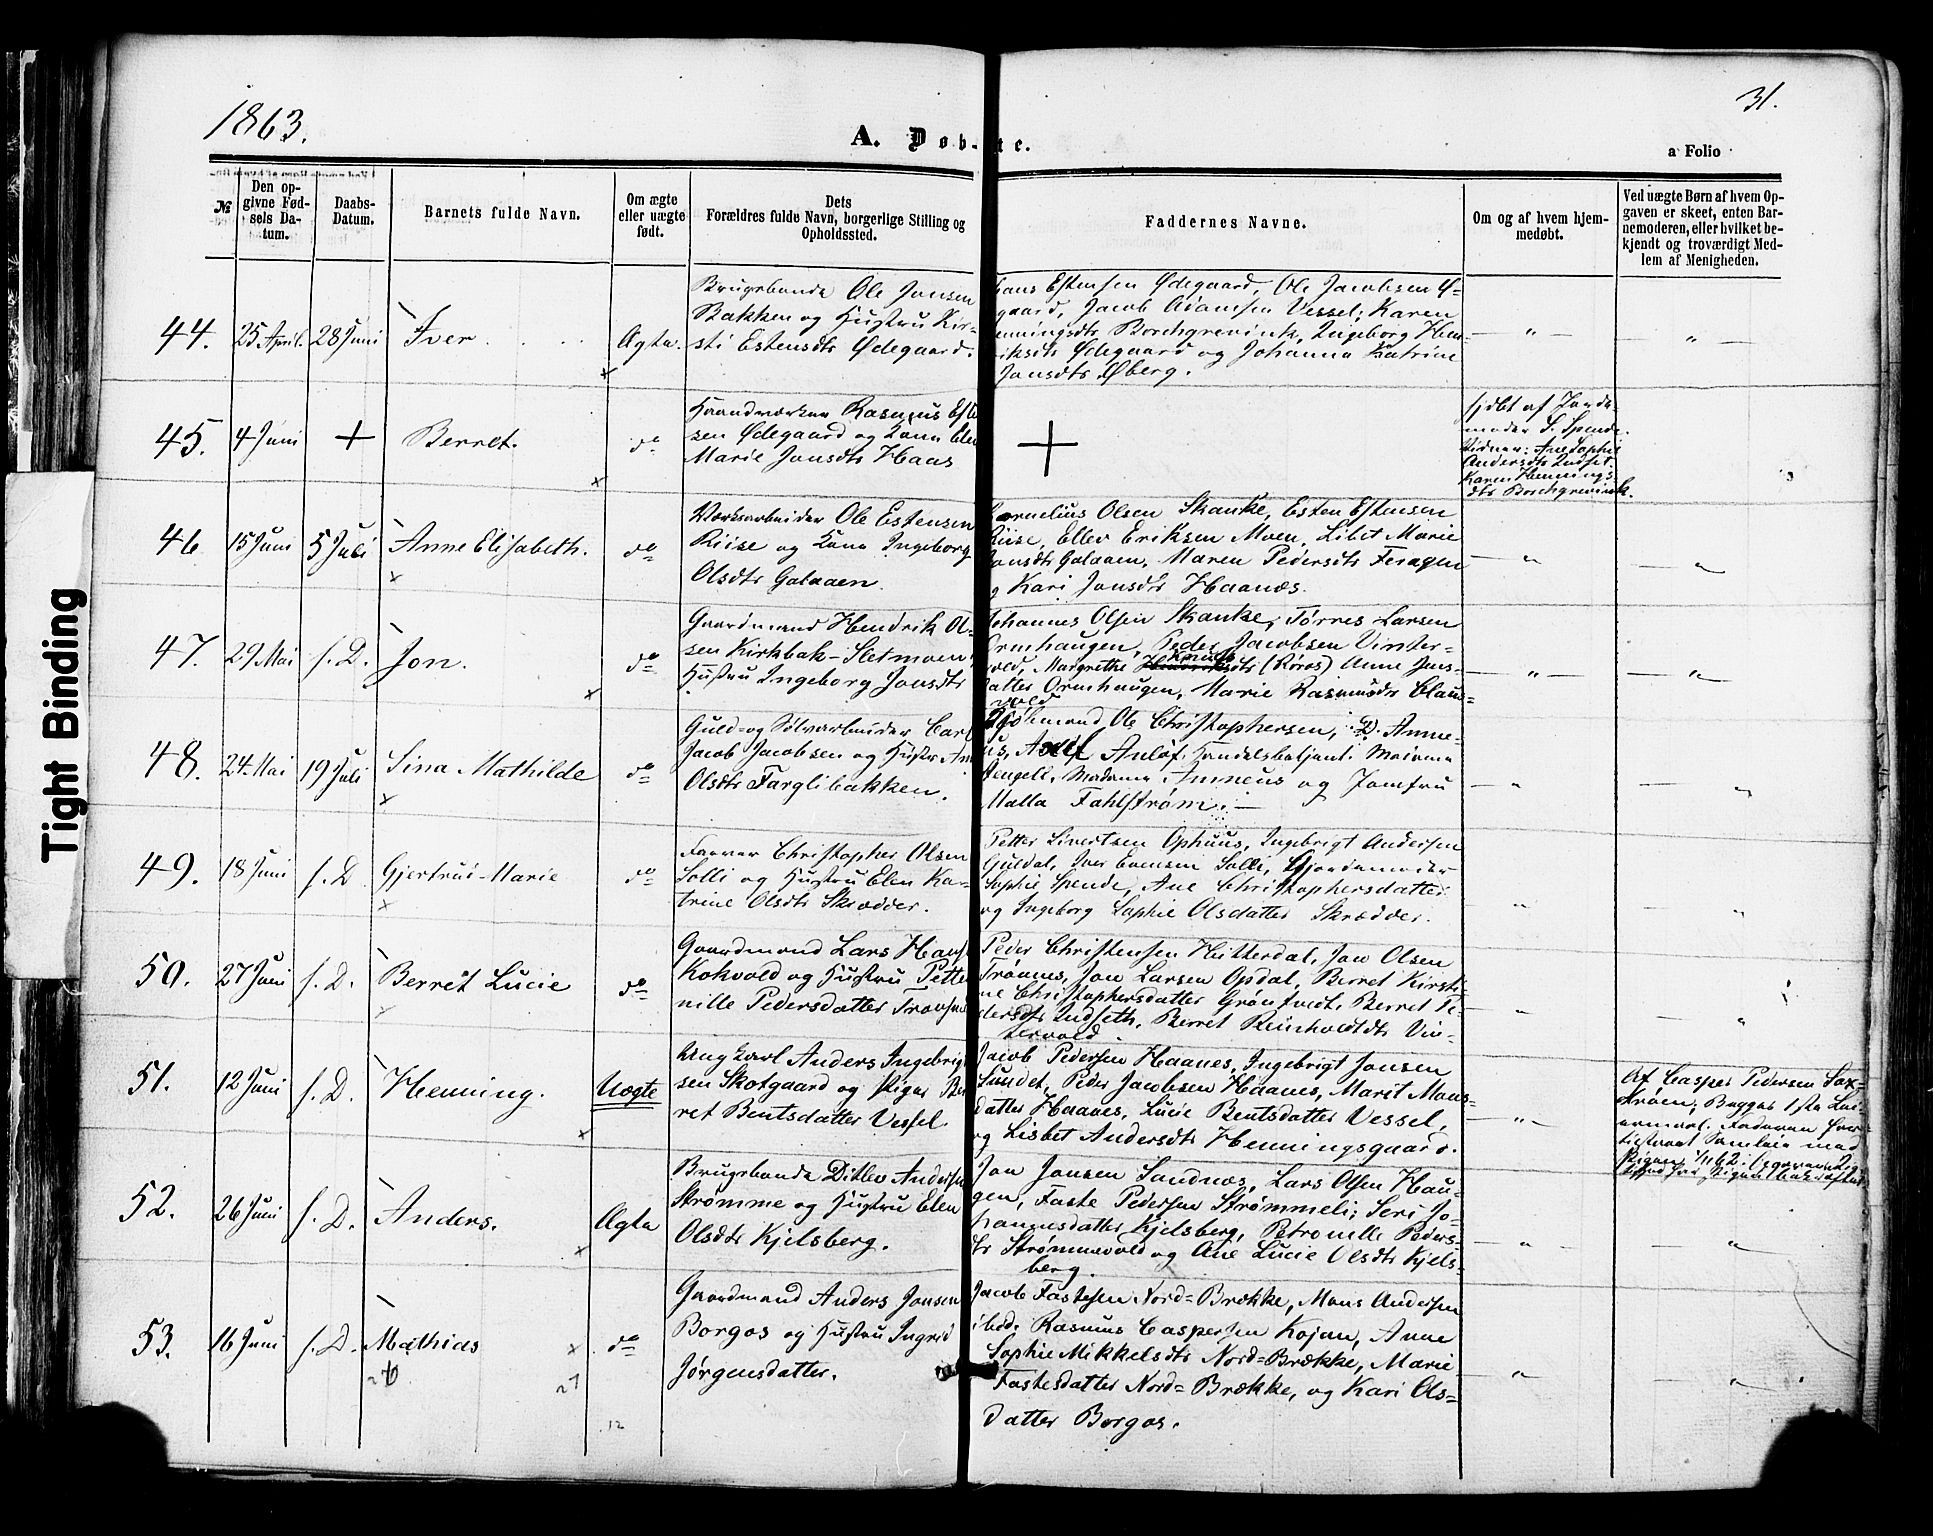 1863.
31.
A. Døb-te.
a Folio
№
Den op-
givne Fød-
sels Da-
tum.
Daabs-
Datum.
Barnets fulde Navn.
Om ægte
eller uægte
født.
Dets
Forældres fulde Navn, borgerlige Stilling og
Opholdssted.
Faddernes Navne.
Om og af hvem hjem-
medøbt.
Ved uægte Børn af hvem Op-
gaven er skeet, enten Bar-
nemoderen, eller hvilket be-
kjendt og troværdigt Med-
lem af Menigheden.
44. 25 April. 28 Juni Iver. Ægte.
Brugsbonde Ole Jonsen
Bakken og Hustru Kir-
sti Estensdtr Ødegaard.
Hans Estensen Ødegaard, Ole Jacobsen Ø-
gaard, Jacob Adamsen Vessel; Karen
Henningsdtr Borchgrevink, Ingeborg Hen-
riksdtr Ødegaard og Johanna Katrine
Jonsdtr Øberg.
— " — — " —
45. 4 Juni + Berret. do
Haandværker Rasmus Este
sen Ødegaard og Kone Elen
Marie Jonsdtr Haas
+
hjdbt af Jorde-
moder S. Spende.
Vidner: Ane Sophie
Andersdtr Indset.
Karen Hennings-
dtr Borchgrevink.
46 15 Juni 5 Juli Anne Elisabeth. do
Værksarbeider Ole Estensen
Riise og Kone Ingeborg
Olsdtr Galaaen.
Cornelius Olsen Skanke, Esten Estensen
Riise, Ellev Eriksen Moen, Libet Marie
Jonsdtr Galaaen, Maren Pedersdtr Feragen
og Kari Jonsdtr Haanæs.
— " — "
47. 29 Mai s. D. Jon. do
Gaardmand Hendrik Ol-
sen Kirkbak-Sletmoen
Hustru Ingeborg Jonsdtr
Johannes Olsen Skanke, Tørres Larsen
Ormhaugen, Peder Jacobsen Vinter-
vold, Margrethe Knuds dtr (Røros) Anne Jens-
datter Ormhaugen, Marie Rasmusdtr Claus-
vold
— " — — " —
48. 24 Mai 19 Juli Sina Mathilde do
Guld-og Sølvarbeider Carl
Jacob Jacobsen og Hustru An
Olsdtr Farglibakken.
Ole Christophersen, D. Anne-
us, Adolf Anløf, Handelsbetjent. Madame
Engell, Madame Anneus og Jomfru
Malla Fahlstrøm. —
— " — "
49. 18 Juni s. D Gjertrui-Marie do
Farver Christopher Olsen
Solli og Hustru Elen Ka-
trine Olsdtr Skrædder.
Petter Sivertsen Ophuus, Ingebrigt Andersen
Guldal, Iver Evensen Solli, Gjordemoder
Sophie Spende, Ane Christophersdatter
og Ingeborg Sophie Olsdatter Skrædder.
" — "
50. 27 Juni s. D. Berret Lucie do
Gaardmand Lars Hans
Kokvold og Hustru Pette
nille Pedersdatter
Peder Christensen Hitterdal, Jon Olsen
Trøanes, Jon Larsen Opdal, Berret Kirsti-
ne Christophersdatter Grøntvedt, Berret Pe-
dersdtr Indseth, Berret Reinholdtdtr Vin-
tervold.
" — "
51. 12 Juni s. D. Henning. Uægte
Ungkarl Anders Ingebrigt
sen Skotgaard og Pige Ber
ret Bentsdatter Vessel.
Jacob Pedersen Haanes, Ingebrigt Jonsen
Sundet, Peder Jacobsen Haanes, Marit Mons-
datter Haanes, Lucie Bentsdatter Vessel,
og Lisbet Andersdtr Henningsgaard.
— " —
Af Casper Pedersen Sax-
trøen; Begges 1ste Lei-
ermaal. Faderen
Samleie med
Pigen 1/11 62.
52. 26 Juni s. D. Anders. Ægte
Brugsbonde Ditlev Anders
Strømme og Hustru Elen
Olsdtr Kjelsberg.
Jon Jonsen Sandnæs, Lars Olsen Hau-
gen, Faste Pedersen Strømmeli; Seri Jo-
hannesdatter Kjelsberg, Petronelle Peders-
dtr Strømmevold og Ane Lucie Olsdtr Kjels-
berg.
— " — "
53. 16 Juni s. D. Mathias do
Gaardmand Anders Jonsen
Borgos og Hustru Ingrid
Jørgensdatter.
Jacob Fastesen Nord=Brække, Mons Andersen
ibdd. Rasmus Caspersen Kojan, Anne
Sophie Mikkelsdtr Nord=Brække, Marie
Fastesdatter Nord=Brække, og Kari Ols=
datter Borgos.
— " — "
27
12
Tight Binding